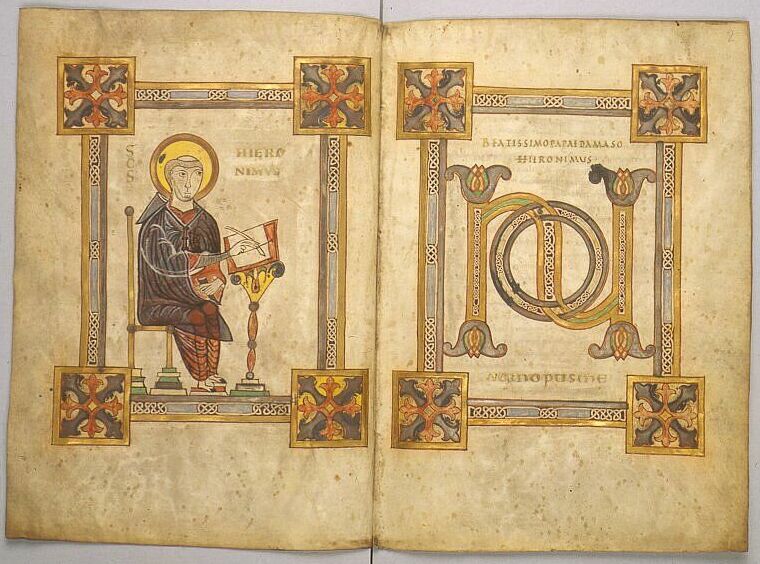 SCS
HIERO
NIMVS
BEATISSIMO PAPAE DAMASO
HIERONIMUS
OPUS ME
2